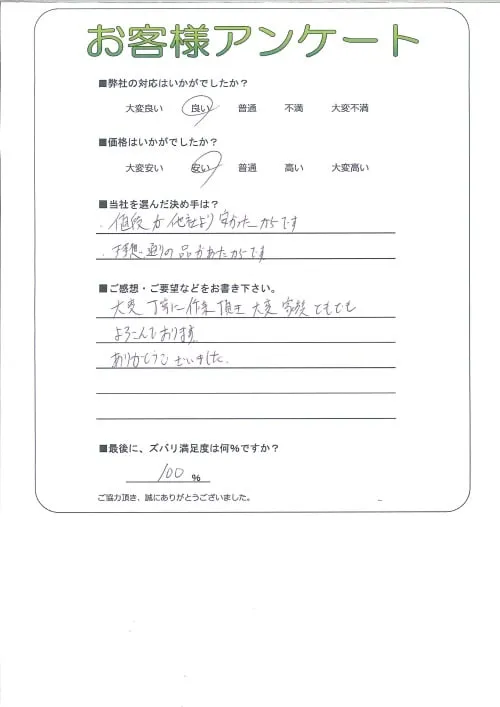 お客様アンケート
■弊社の対応はいかがでしたか?
大変良い 良い 普通 不満 大変不満
■価格はいかがでしたか?
大変安い 安い 普通 高い 大変高い
■当社を選んだ決め手は?
・値段が他社より安かったからです
・予想通りの品があたからです
■ご感想・ご要望などをお書き下さい。
大変丁寧に作業頂き大変家族ともども
よろこんでおります
ありがとうございました。
■最後に、ズバリ満足度は何%ですか?
100 %
ご協力頂き、誠にありがとうございました。